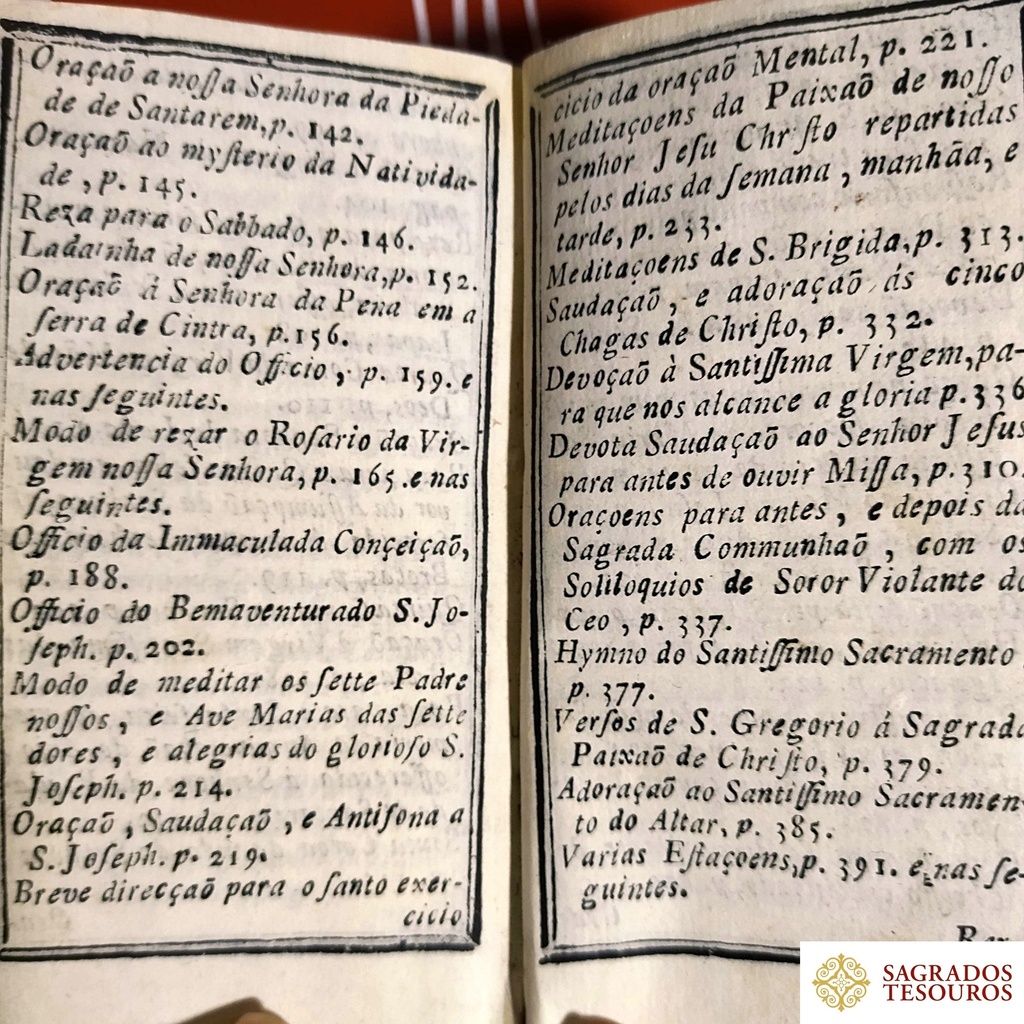 Oraçaõ a noſſa Senhora da Pieda-
de de Santarem, p. 142.
Oraçaõ ao myſterio da Nativida-
de, p. 145.
Reza para o Sabbado, p. 146.
Ladainha de noſſa Senhora, p. 152.
Oraçaõ á Senhora da Pena em a
ſerra de Cintra, p. 156.
Advertencia do Officio, p. 159. e
nas ſeguintes.
Modo de rezar o Roſario da Vir-
gem noſſa Senhora, p. 165. e nas
ſeguintes.
Officio da Immaculada Conçeiçaõ,
p. 188.
Officio do Bemaventurado S. Jo-
ſeph. p. 202.
Modo de meditar os ſette Padre
noſſos, e Ave Marias das ſette
dores, e alegrias do glorioſo S.
Joſeph. p. 214.
Oraçaõ, Saudaçaõ, e Antifona a
S. Joſeph. p. 219.
Breve direcçaõ para o ſanto exer-
cicio
cicio da oraçaõ Mental, p. 221.
Meditaçoens da Paixaõ de noſſo
Senhor Jeſu Chriſto repartidas
pelos dias da ſemana, manhãa, e
tarde, p. 233.
Meditaçoens de S. Brigida, p. 313.
Saudaçaõ, e adoraçaõ ás cinco
Chagas de Chriſto, p. 332.
Devoçaõ à Santiſſima Virgem, pa-
ra que nos alcance a gloria p. 336
Devota Saudaçaõ ao Senhor Jeſus
para antes de ouvir Miſſa, p. 310.
Oraçoens para antes, e depois da
Sagrada Communhaõ, com os
Soliloquios de Soror Violante do
Ceo, p. 337.
Hymno do Santiſſimo Sacramento
p. 377.
Verſos de S. Gregorio á Sagrada
Paixaõ de Chriſto, p. 379.
Adoraçaõ ao Santiſſimo Sacramen-
to do Altar, p. 385.
Varias Eſtaçoens, p. 391. e nas ſe-
guintes.
SAGRADOS
TESOUROS